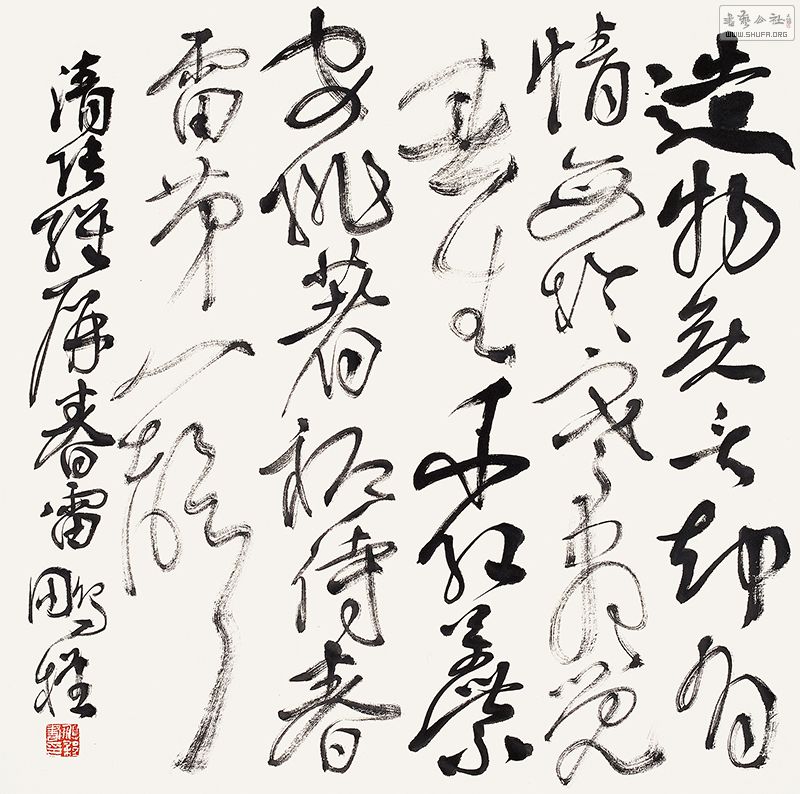 書藝公社
WWW.SHUFA.ORG
造物無言却有
情每於寒盡覺
春生千紅萬紫
安排著祗待春
雷第一聲
清張維屏春雷 鵬